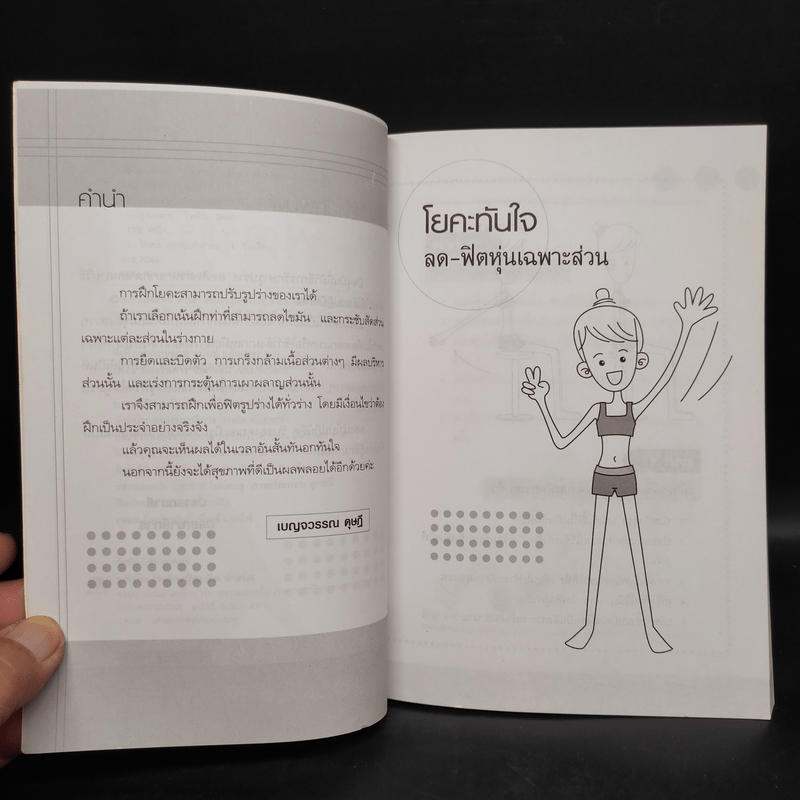 คำนำ
การฝึกโยคะสามารถปรับรูปร่างของเราได้
ถ้าเราเลือกเน้นฝึกท่าที่สามารถลดไขมัน และกระชับสัดส่วน
เฉพาะแต่ละส่วนในร่างกาย
การยืดและบิดตัว การเกร็งกล้ามเนื้อส่วนต่างๆ มีผลบริหาร
ส่วนนั้น และเร่งการกระตุ้นการเผาผลาญส่วนนั้น
เราจึงสามารถฝึกเพื่อฟิตรูปร่างได้ทั่วร่าง โดยมีเงื่อนไขว่าต้อง
ฝึกเป็นประจำอย่างจริงจัง
แล้วคุณจะเห็นผลได้ในเวลาอันสั้นทันอกทันใจ
นอกจากนี้ยังจะได้สุขภาพที่ดีเป็นผลพลอยได้อีกด้วยค่ะ
เบญจวรรณ ดุษฎี
โยคะทันใจ
ลด-ฟิตหุ่นเฉพาะส่วน